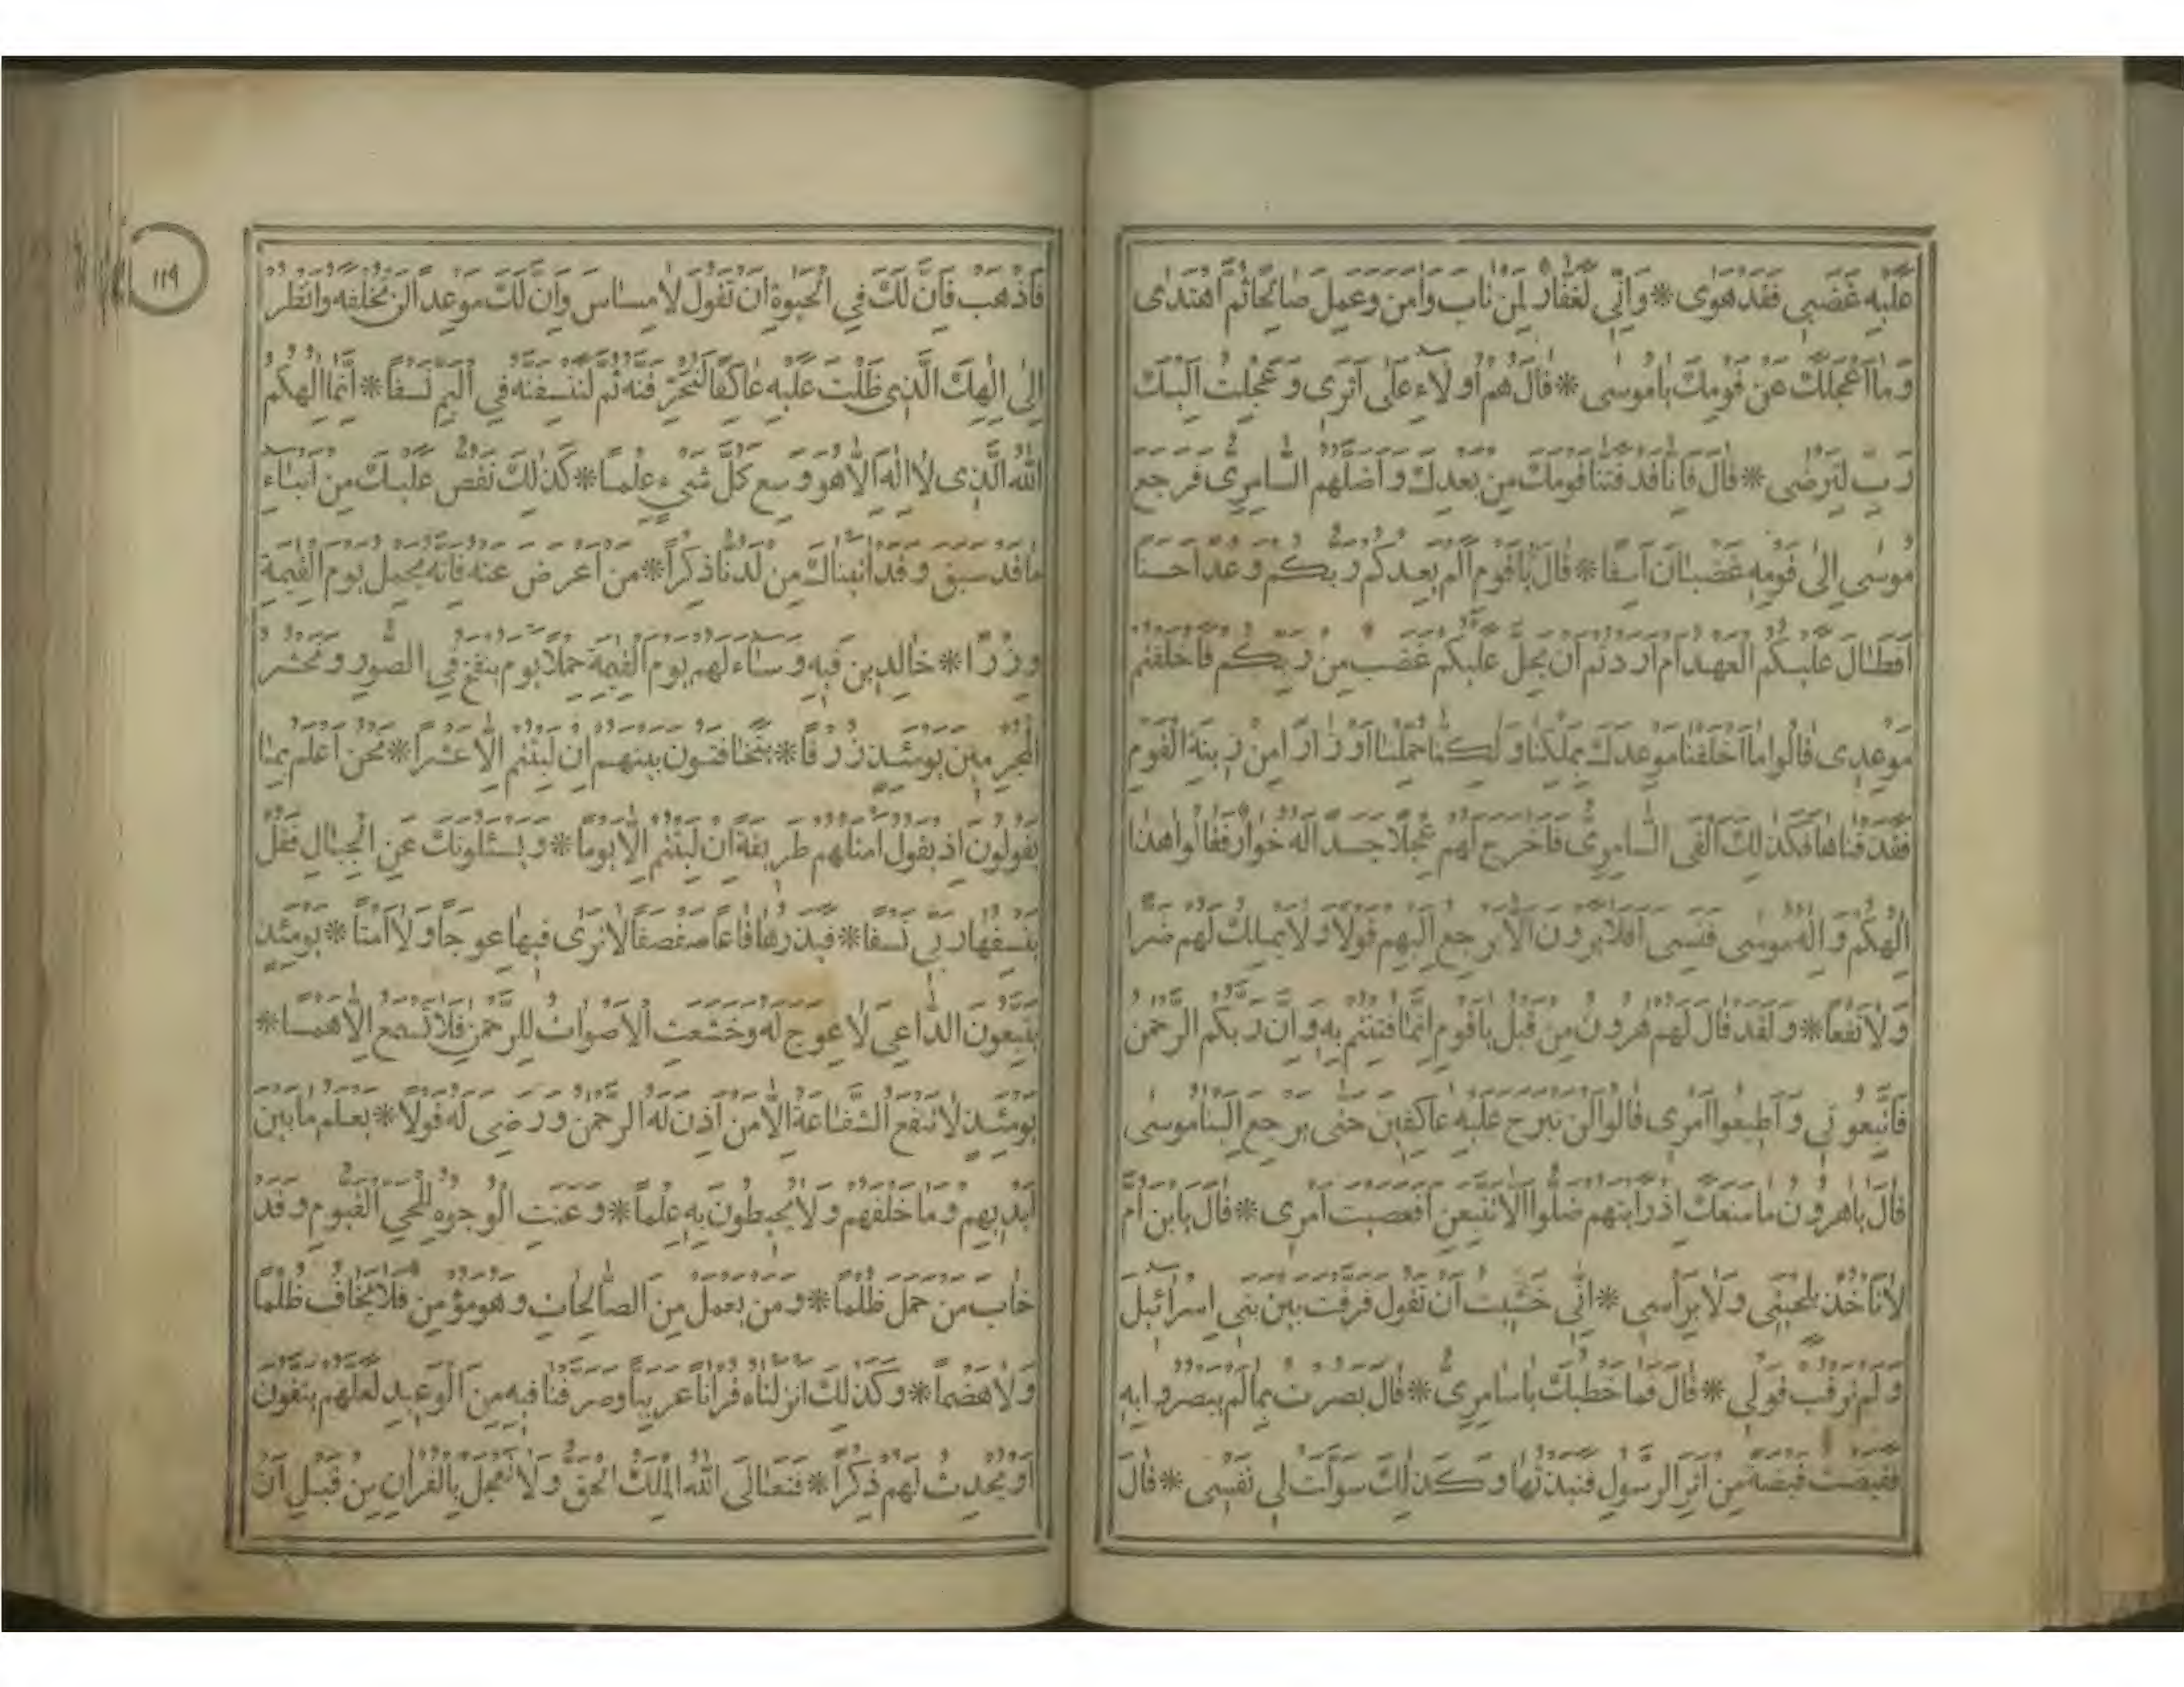 عَلَيْهِ غَضَبِي فَقَدْ هَوٰى * وَاِنِّي لَغَفَّارٌ لِمَنْ تَابَ وَاٰمَنَ وَعَمِلَ صَالِحًا ثُمَّ اهْتَدٰى
وَمَا اَعْجَلَكَ عَنْ قَوْمِكَ يَا مُوسٰى * قَالَ هُمْ اُولَاءِ عَلٰى اَثَرِى وَعَجِلْتُ اِلَيْكَ
رَبِّ لِتَرْضٰى * قَالَ فَاِنَّا قَدْ فَتَنَّا قَوْمَكَ مِنْ بَعْدِكَ وَاَضَلَّهُمُ السَّامِرِىُّ فَرَجَعَ
مُوسٰى اِلٰى قَوْمِهِ غَضْبَانَ اَسِفًا * قَالَ يَا قَوْمِ اَلَمْ يَعِدْكُمْ رَبُّكُمْ وَعْدًا حَسَنًا
اَفَطَالَ عَلَيْكُمُ الْعَهْدُ اَمْ اَرَدْتُمْ اَنْ يَحِلَّ عَلَيْكُمْ غَضَبٌ مِنْ رَبِّكُمْ فَاَخْلَفْتُمْ
مَوْعِدِى قَالُوا مَا اَخْلَفْنَا مَوْعِدَكَ بِمَلْكِنَا وَلٰكِنَّا حُمِّلْنَا اَوْزَارًا مِنْ زِينَةِ الْقَوْمِ
فَقَذَفْنَاهَا فَكَذٰلِكَ اَلْقَى السَّامِرِىُّ فَاَخْرَجَ لَهُمْ عِجْلًا جَسَدًا لَهُ خُوَارٌ فَقَالُوا هٰذَا
اِلٰهُكُمْ وَاِلٰهُ مُوسٰى فَنَسِيَ اَفَلَا يَرَوْنَ اَلَّا يَرْجِعُ اِلَيْهِمْ قَوْلًا وَلَا يَمْلِكُ لَهُمْ ضَرًّا
وَلَا نَفْعًا * وَلَقَدْ قَالَ لَهُمْ هٰرُونُ مِنْ قَبْلُ يَا قَوْمِ اِنَّمَا فُتِنْتُمْ بِهِ وَاِنَّ رَبَّكُمُ الرَّحْمٰنُ
فَاتَّبِعُونِي وَاَطِيعُوا اَمْرِى قَالُوا لَنْ نَبْرَحَ عَلَيْهِ عَاكِفِينَ حَتّٰى يَرْجِعَ اِلَيْنَا مُوسٰى
قَالَ يَا هٰرُونُ مَا مَنَعَكَ اِذْ رَاَيْتَهُمْ ضَلُّوا اَلَّا تَتَّبِعَنِ اَفَعَصَيْتَ اَمْرِى * قَالَ يَا بْنَ اُمَّ
لَا تَاْخُذْ بِلِحْيَتِى وَلَا بِرَاْسِى * اِنِّي خَشِيتُ اَنْ تَقُولَ فَرَّقْتَ بَيْنَ بَنِى اِسْرَائِيلَ
وَلَمْ تَرْقُبْ قَوْلِى * قَالَ فَمَا خَطْبُكَ يَا سَامِرِىُّ * قَالَ بَصُرْتُ بِمَا لَمْ يَبْصُرُوا بِهِ
فَقَبَضْتُ قَبْضَةً مِنْ اَثَرِ الرَّسُولِ فَنَبَذْتُهَا وَكَذٰلِكَ سَوَّلَتْ لِى نَفْسِى * قَالَ
١١٩
فَاذْهَبْ فَاِنَّ لَكَ فِي الْحَيٰوةِ اَنْ تَقُولَ لَا مِسَاسَ وَاِنَّ لَكَ مَوْعِدًا لَنْ تُخْلَفَهُ وَانْظُرْ
اِلٰى اِلٰهِكَ الَّذِى ظَلْتَ عَلَيْهِ عَاكِفًا لَنُحَرِّقَنَّهُ ثُمَّ لَنَنْسِفَنَّهُ فِي الْيَمِّ نَسْفًا * اِنَّمَا اِلٰهُكُمُ
اللّٰهُ الَّذِى لَا اِلٰهَ اِلَّا هُوَ وَسِعَ كُلَّ شَيْءٍ عِلْمًا * كَذٰلِكَ نَقُصُّ عَلَيْكَ مِنْ اَنْبَاءِ
مَا قَدْ سَبَقَ وَقَدْ اٰتَيْنَاكَ مِنْ لَدُنَّا ذِكْرًا * مَنْ اَعْرَضَ عَنْهُ فَاِنَّهُ يَحْمِلُ يَوْمَ الْقِيٰمَةِ
وِزْرًا * خَالِدِينَ فِيهِ وَسَاءَ لَهُمْ يَوْمَ الْقِيٰمَةِ حِمْلًا يَوْمَ يُنْفَخُ فِي الصُّورِ وَنَحْشُرُ
الْمُجْرِمِينَ يَوْمَئِذٍ زُرْقًا * يَتَخَافَتُونَ بَيْنَهُمْ اِنْ لَبِثْتُمْ اِلَّا عَشْرًا * نَحْنُ اَعْلَمُ بِمَا
يَقُولُونَ اِذْ يَقُولُ اَمْثَلُهُمْ طَرِيقَةً اِنْ لَبِثْتُمْ اِلَّا يَوْمًا * وَيَسْئَلُونَكَ عَنِ الْجِبَالِ فَقُلْ
يَنْسِفُهَا رَبِّي نَسْفًا * فَيَذَرُهَا قَاعًا صَفْصَفًا لَا تَرٰى فِيهَا عِوَجًا وَلَا اَمْتًا * يَوْمَئِذٍ
يَتَّبِعُونَ الدَّاعِيَ لَا عِوَجَ لَهُ وَخَشَعَتِ الْاَصْوَاتُ لِلرَّحْمٰنِ فَلَا تَسْمَعُ اِلَّا هَمْسًا *
يَوْمَئِذٍ لَا تَنْفَعُ الشَّفَاعَةُ اِلَّا مَنْ اَذِنَ لَهُ الرَّحْمٰنُ وَرَضِيَ لَهُ قَوْلًا * يَعْلَمُ مَا بَيْنَ
اَيْدِيهِمْ وَمَا خَلْفَهُمْ وَلَا يُحِيطُونَ بِهِ عِلْمًا * وَعَنَتِ الْوُجُوهُ لِلْحَيِّ الْقَيُّومِ وَقَدْ
خَابَ مَنْ حَمَلَ ظُلْمًا * وَمَنْ يَعْمَلْ مِنَ الصَّالِحَاتِ وَهُوَ مُؤْمِنٌ فَلَا يَخَافُ ظُلْمًا
وَلَا هَضْمًا * وَكَذٰلِكَ اَنْزَلْنَاهُ قُرْاٰنًا عَرَبِيًّا وَصَرَّفْنَا فِيهِ مِنَ الْوَعِيدِ لَعَلَّهُمْ يَتَّقُونَ
اَوْ يُحْدِثُ لَهُمْ ذِكْرًا * فَتَعَالَى اللّٰهُ الْمَلِكُ الْحَقُّ وَلَا تَعْجَلْ بِالْقُرْاٰنِ مِنْ قَبْلِ اَنْ